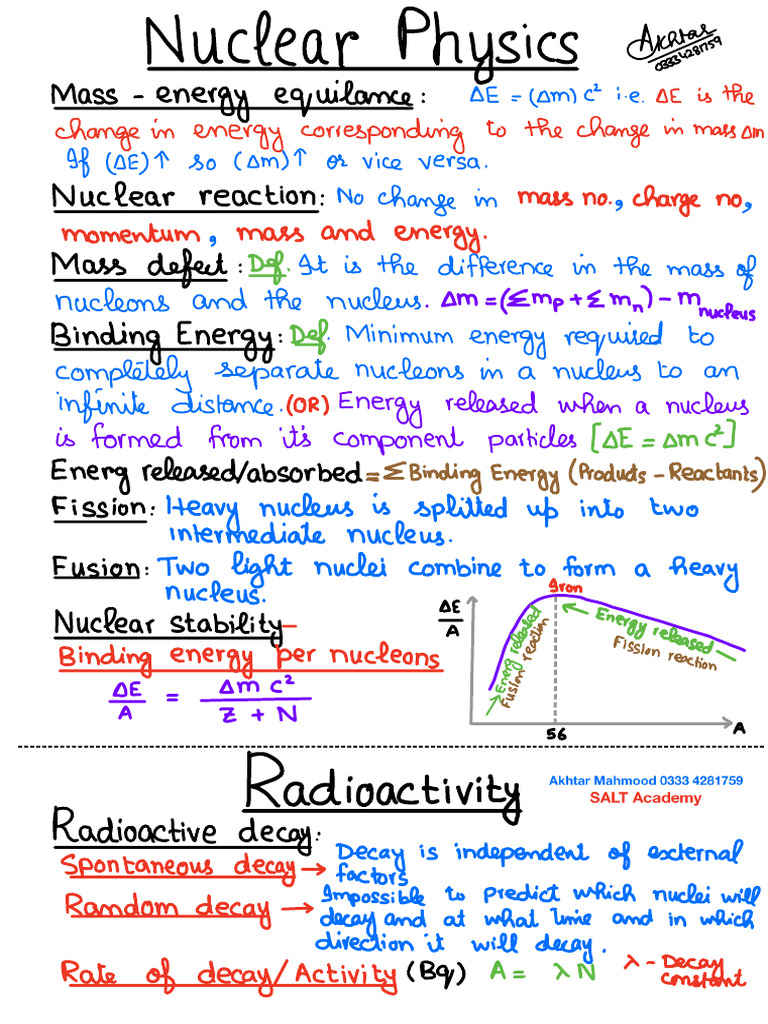 Nuclear Physics
Akhtar
03334281759
Mass - energy equilance: ΔE = (Δm) c² i.e. ΔE is the
change in energy corresponding to the change in mass Δm
If (ΔE)↑ so (Δm)↑ or vice versa.
Nuclear reaction: No change in mass no., charge no,
momentum, mass and energy.
Mass defect: Def. It is the difference in the mass of
nucleons and the nucleus. Δm = (Σmp + Σmn) - m nucleus
Binding Energy: Def. Minimum energy required to
completely separate nucleons in a nucleus to an
infinite distance. (OR) Energy released when a nucleus
is formed from it's component particles [ΔE = Δm c²]
Energ released/absorbed = Σ Binding Energy (Products - Reactants)
Fission: Heavy nucleus is splitted up into two
intermediate nucleus.
Fusion: Two light nuclei combine to form a heavy
nucleus.
Nuclear stability-
Binding energy per nucleons
ΔE/A = Δm c² / Z + N
Iron
ΔE/A
Energ released
Fusion reaction
← Energy released -
Fission reaction
56
A
Radioactivity
Akhtar Mahmood 0333 4281759
SALT Academy
Radioactive decay:
Spontaneous decay → Decay is independent of external
factors
Random decay → Impossible to predict which nuclei will
decay and at what time and in which
direction it will decay.
Rate of decay/Activity (Bq) A = λN λ - Decay
constant